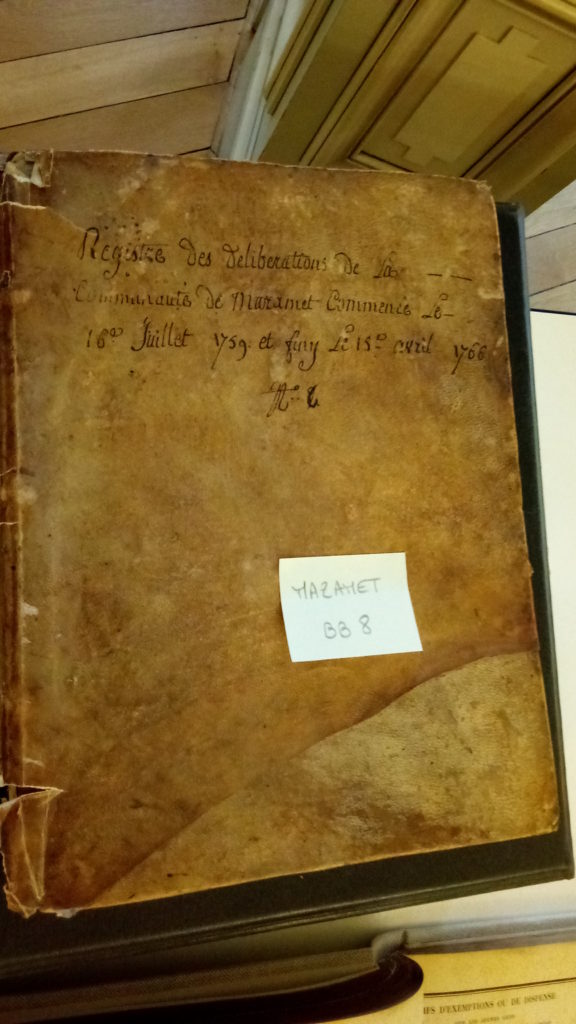 Registre des deliberations de La
Communauté de Mazamet Commencé Le
16e Juillet 1759. et finy Le 15e avril 1766
No. 8
MAZAMET
BB 8
IFS D'EXEMPTIONS OU DE DISPENSE